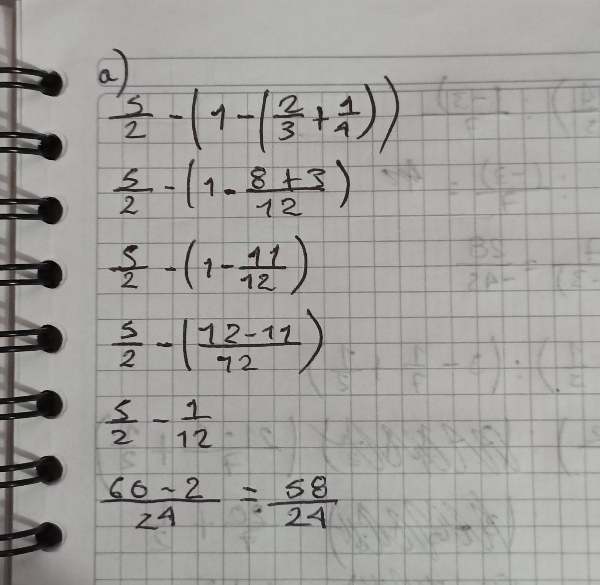 a)
5/2 - (1 - (2/3 + 1/4))
5/2 - (1 - (8+3)/12)
5/2 - (1 - 11/12)
5/2 - ((12-11)/12)
5/2 - 1/12
(60-2)/24 = 58/24